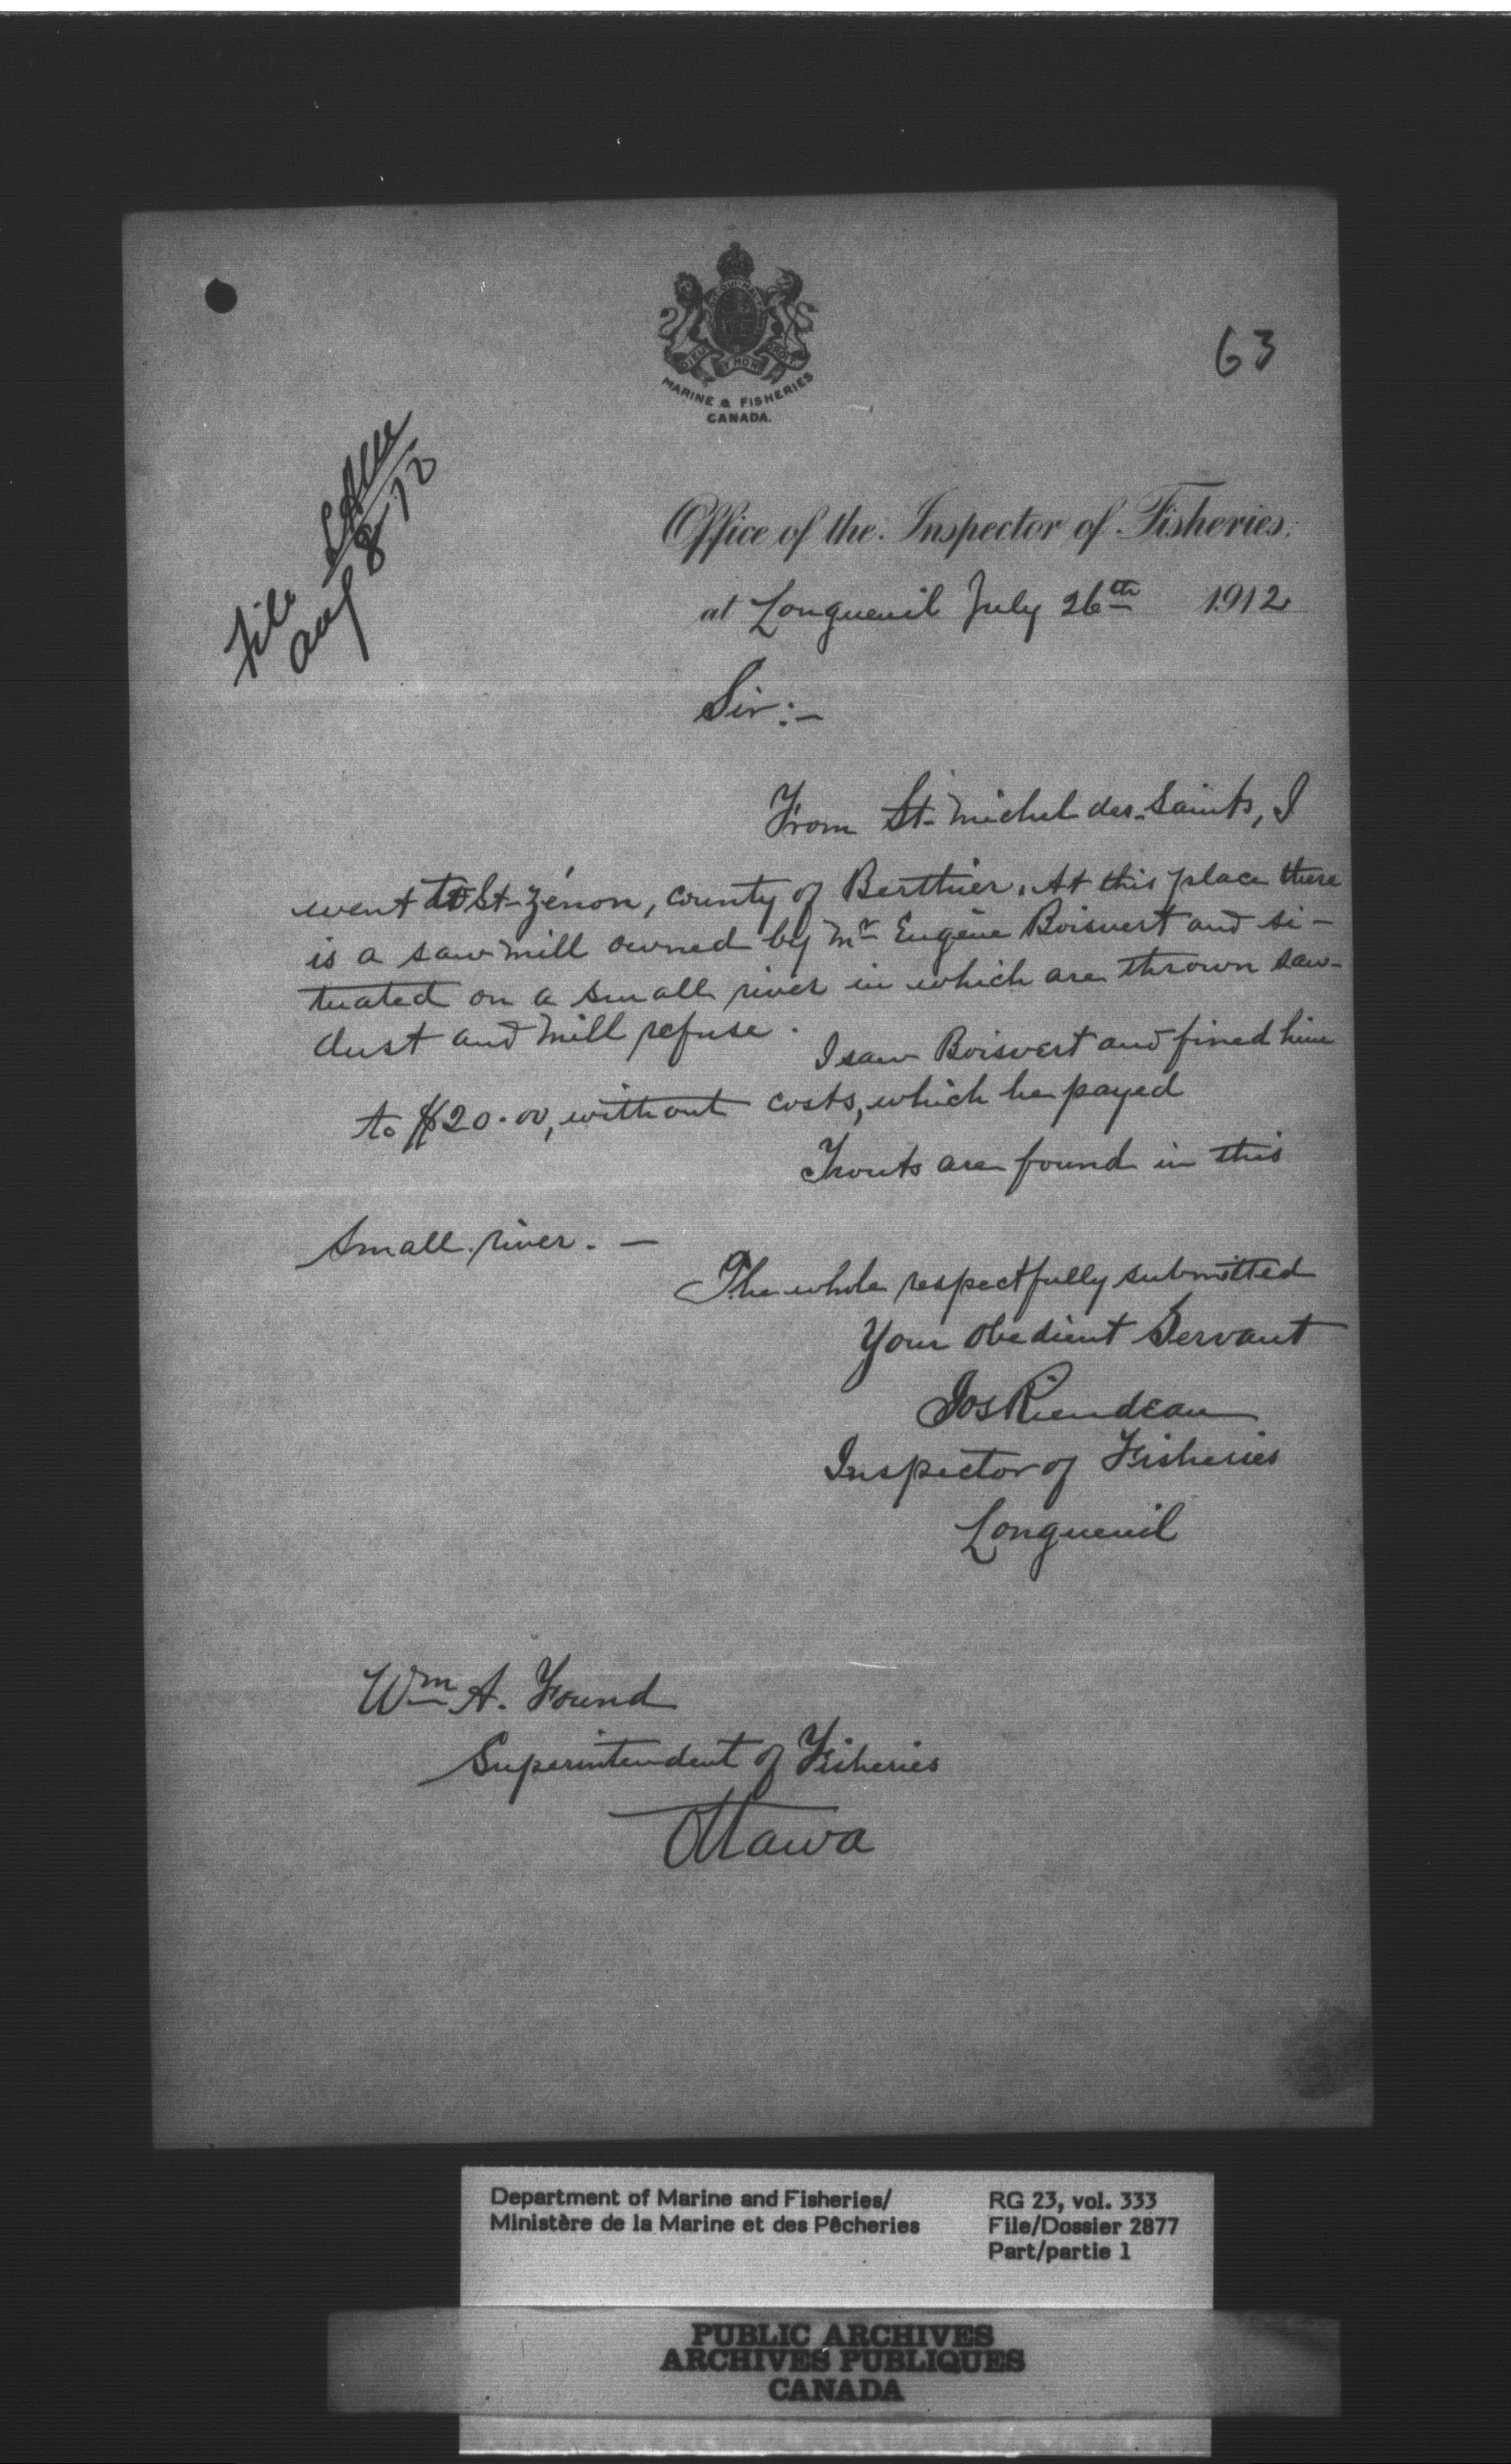 DIEU ET MON DROIT
MARINE & FISHERIES
CANADA.
63
File
Aug 8-12
Office of the Inspector of Fisheries.
at Longueuil July 26th 1912
Sir:-
From St-Michel des-Saints, I
went to St-Zénon, county of Berthier. At this place there
is a saw mill owned by Mr Eugène Boisvert and si-
tuated on a small river in which are thrown saw-
dust and mill refuse.
I saw Boisvert and fined him
to $20.00, without costs, which he payed
Trouts are found in this
small river. -
The whole respectfully submitted
Your obedient Servant
Jos Riendeau
Inspector of Fisheries
Longueuil
Wm A. Found
Superintendent of Fisheries
Ottawa
Department of Marine and Fisheries/
Ministère de la Marine et des Pêcheries
RG 23, vol. 333
File/Dossier 2877
Part/partie 1
PUBLIC ARCHIVES
ARCHIVES PUBLIQUES
CANADA